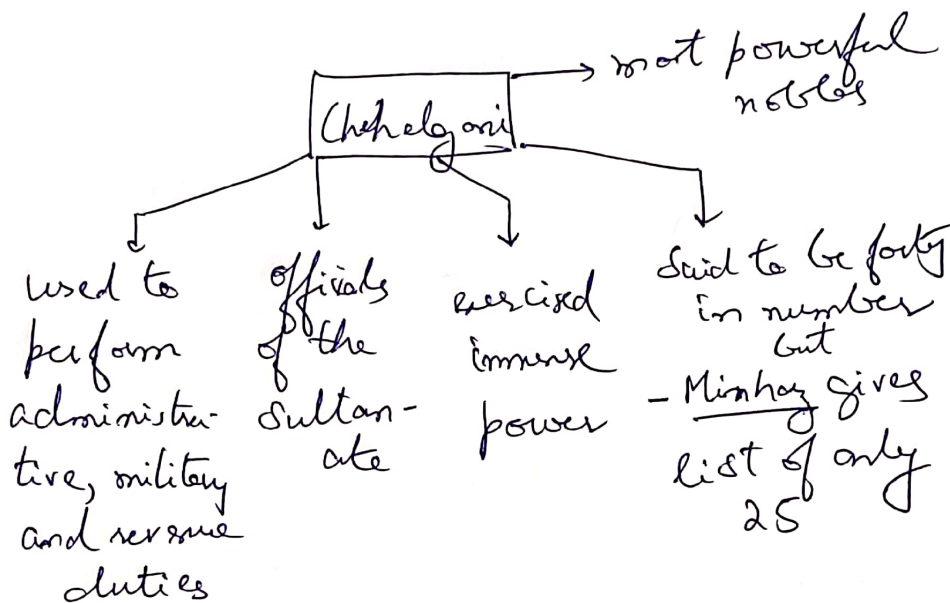 most powerful
nobles
Chehelgani
used to
perform
administra-
tive, military
and revenue
duties
officials
of the
Sultan-
ate
exercised
immense
power
Said to be forty
in number
but
- Minhaz gives
list of only
25